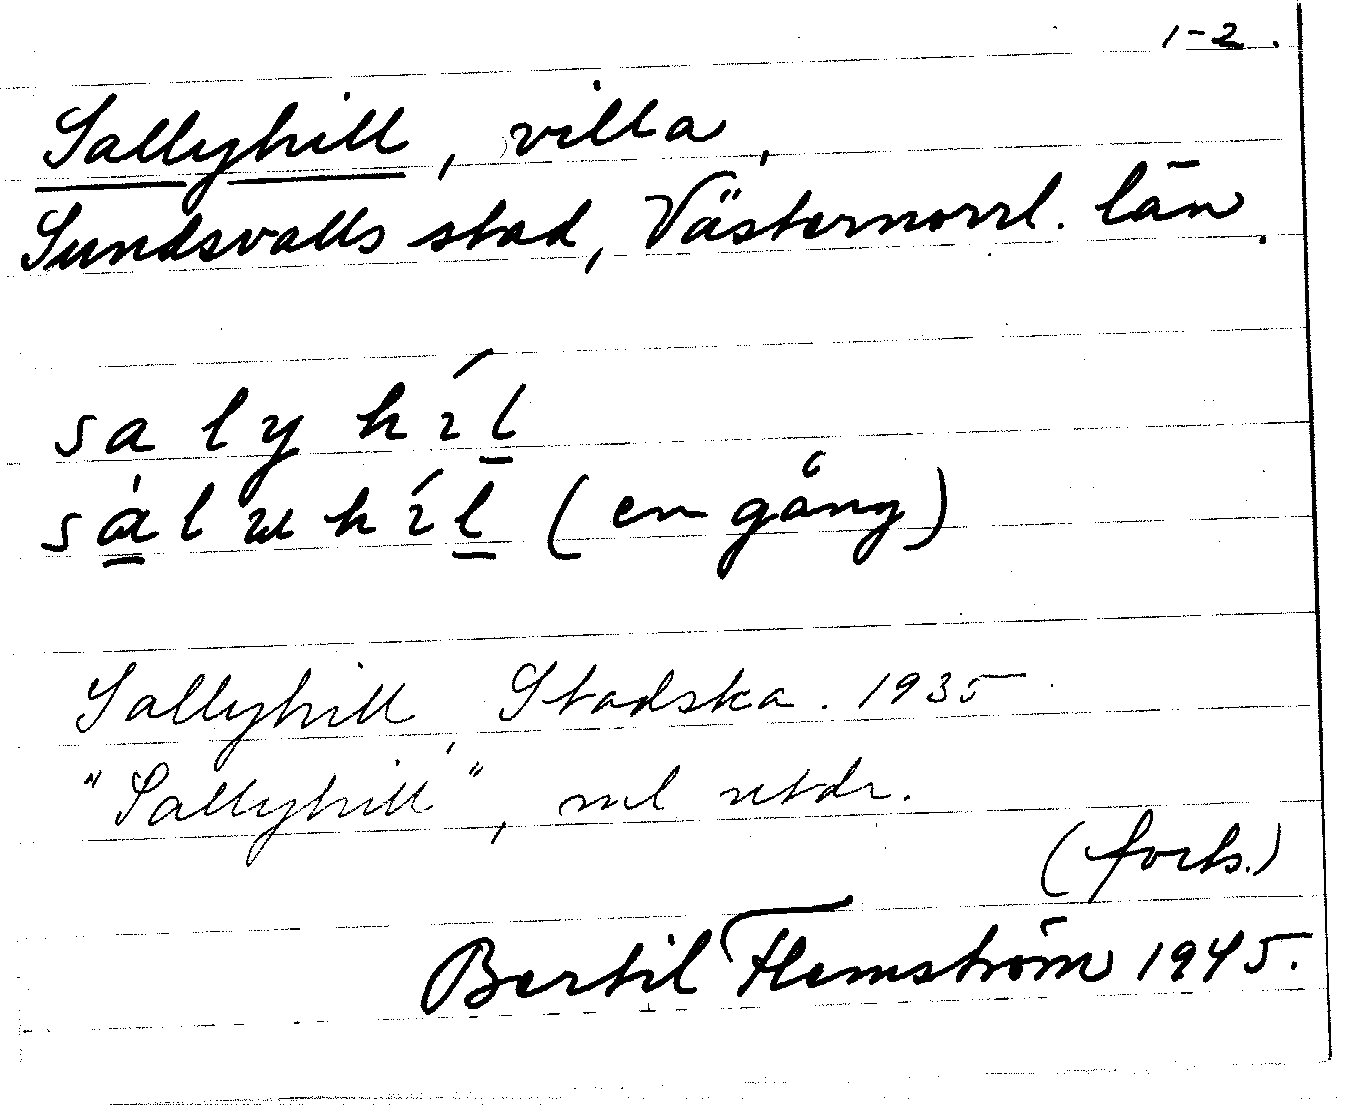 1-2.
Sallyhill, villa,
Sundsvalls stad, Västernorrl. län.
salyhíl
sàluhíl (en gång)
Sallyhill, Stadska. 1935
"Sallyhill", ml utdr.
(forts.)
Bertil Flemström 1945.